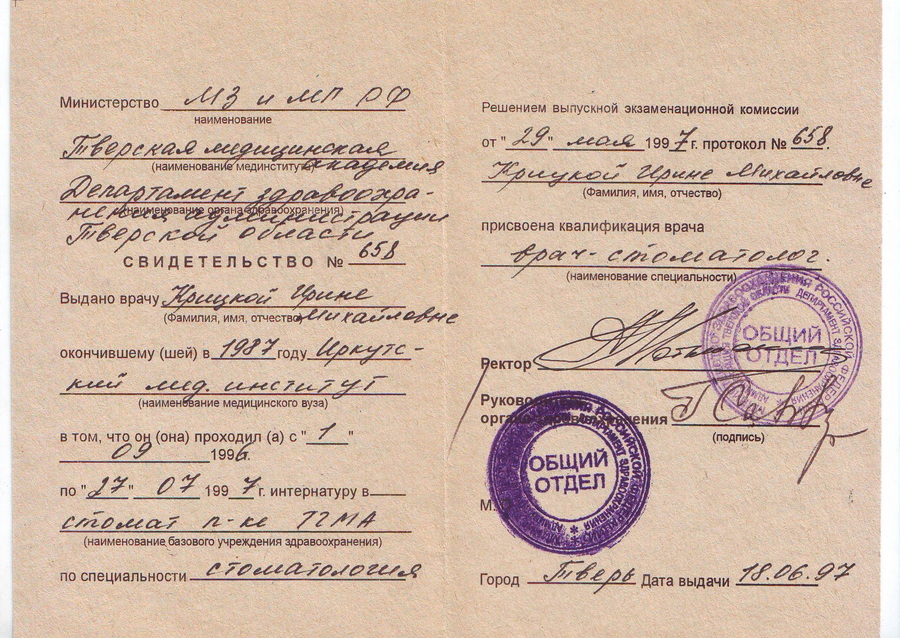 Министерство МЗ и МП РФ
наименование
Тверская медицинская
(наименование мединститута) академия
Департамент здравоохра-
(наименование органа здравоохранения)
нения администрации
Тверской области
СВИДЕТЕЛЬСТВО № 658
Выдано врачу Крицкой Ирине
(Фамилия, имя, отчество) Михайловне
окончившему (шей) в 1987 году Иркутс-
кий мед. институт
(наименование медицинского вуза)
в том, что он (она) проходил (а) с "1"
09 1996.
по "27" 07 1997 г. интернатуру в
стомат п-ке ТГМА
(наименование базового учреждения здравоохранения)
по специальности стоматология
Решением выпускной экзаменационной комиссии
от "29" мая 1997 г. протокол № 658.
Крицкой Ирине Михайловне
(Фамилия, имя, отчество)
присвоена квалификация врача
врач-стоматолог.
(наименование специальности)
Ректор
Руково
органа здравоохранения
(подпись)
ОБЩИЙ
ОТДЕЛ
ОБЩИЙ
ОТДЕЛ
М.
Город Тверь Дата выдачи 18.06.97